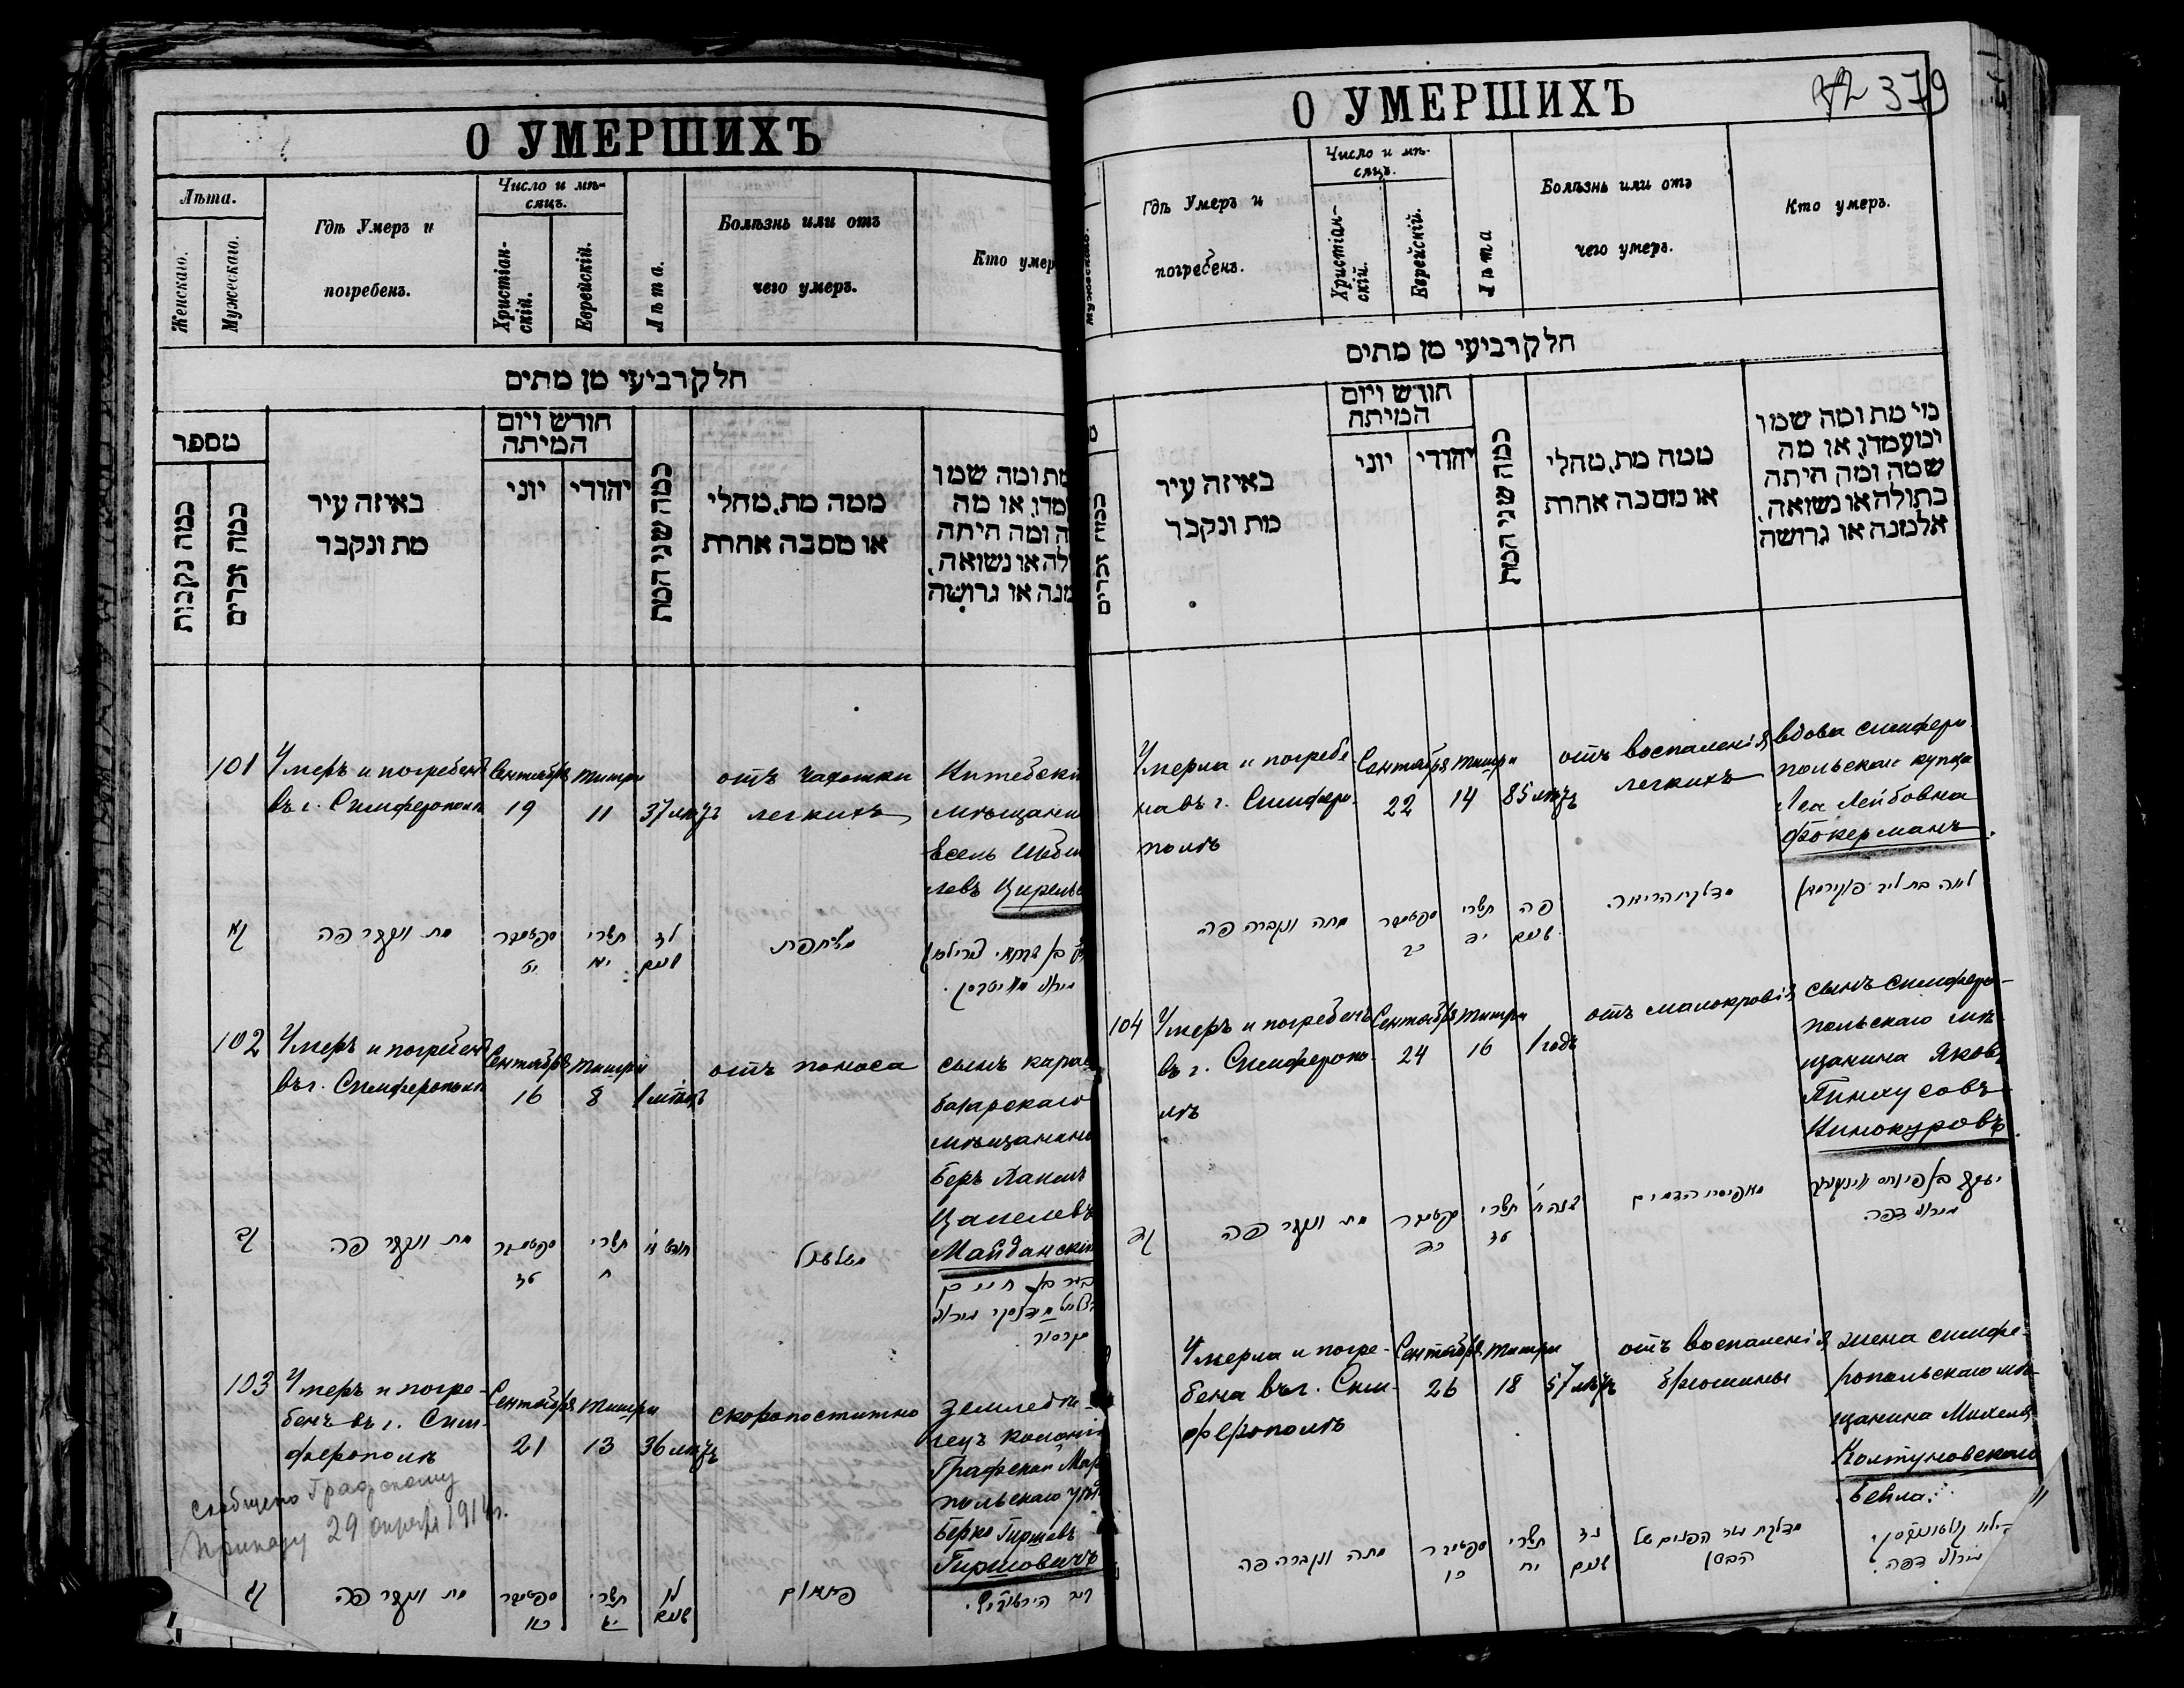 О УМЕРШИХЪ
Лѣта.
Женскаго.
Мужескаго.
Гдѣ Умеръ и
погребенъ.
Число и мѣ-
сяцъ.
Христіан-
скій.
Еврейскій.
Лѣта.
Болѣзнь или отъ
чего умеръ.
Кто умер
חלק רביעי מן מתים
מספר
כמה נקבות
כמה זכרים
באיזה עיר
מת ונקבר
חודש ויום
המיתה
יוני
יהודי
כמה שני המת
ממה מת, מחלי
או מסבה אחרת
מת ומה שמו
מדו, או מה
ה ומה היתה
לה או נשואה,
מנה או גרושה
101
Умеръ и погребенъ
въ г. Симферополѣ
Сентября
19
Тишри
11
37 лѣтъ
отъ чахотки
легкихъ
мѣщани
קא
מת ונקבר פה
ספטמבר
יט
תשרי
יא
לז
שנים
משחפת
102
Умеръ и погребенъ
въ г. Симферополѣ
Сентября
16
Тишри
8
отъ поноса
сынъ карас
базарскаго
мѣщанина
Беръ
Майданскій
קב
מת ונקבר פה
ספטמבר
טז
תשרי
ח
משלשול
103
Умеръ и погре-
бенъ въ г. Сим-
ферополѣ
Сентября
21
Тишри
13
36 лѣтъ
скоропостижно
Землед
лецъ колоніи
Графской Мар
польскаго уѣз
Берко Гиршовъ
Гиршовичъ
Сообщено Графскому
Приказу 29 апрѣля 1914 г.
קג
מת ונקבר פה
ספטמבר
כא
תשרי
יג
לו
שנים
פתאום
О УМЕРШИХЪ
379
Мужескаго.
Гдѣ Умеръ и
погребенъ.
Число и мѣ-
сяцъ.
Христіан-
скій.
Еврейскій.
Лѣта
Болѣзнь или отъ
чего умеръ.
Кто умеръ.
חלק רביעי מן מתים
כמה זכרים
באיזה עיר
מת ונקבר
חודש ויום
המיתה
יוני
יהודי
כמה שני המת
ממה מת, מחלי
או מסבה אחרת
מי מת ומה שמו
ומעמדו, או מה
שמה ומה היתה
בתולה או נשואה,
אלמנה או גרושה
Умерла и погребе-
на въ г. Симферо-
полѣ
Сентября
22
Тишри
14
85 лѣтъ
отъ воспаленія
легкихъ
вдова симферо-
польскаго купца
Лея Лейбовна
Фокерманъ
מתה ונקברה פה
ספטמבר
כב
תשרי
יד
פה
שנים
מדלקת הריאה
104
Умеръ и погребенъ
въ г. Симферопо-
лѣ
Сентября
24
Тишри
16
1 годъ
отъ малокровія
сынъ симферо-
польскаго мѣ-
щанина Яковъ
Пинхусовъ
Винокуровъ
קד
מת ונקבר פה
ספטמבר
כד
תשרי
טז
יעקב בן פינחס
Умерла и погре-
бена въ г. Сим-
ферополѣ
Сентября
26
Тишри
18
57 лѣтъ
отъ воспаленія
брюшины
жена симфе-
ропольскаго мѣ-
щанина Михеля
Колтуновскаго
Бейла.
מתה ונקברה פה
ספטמבר
כו
תשרי
יח
נז
שנים
הבטן